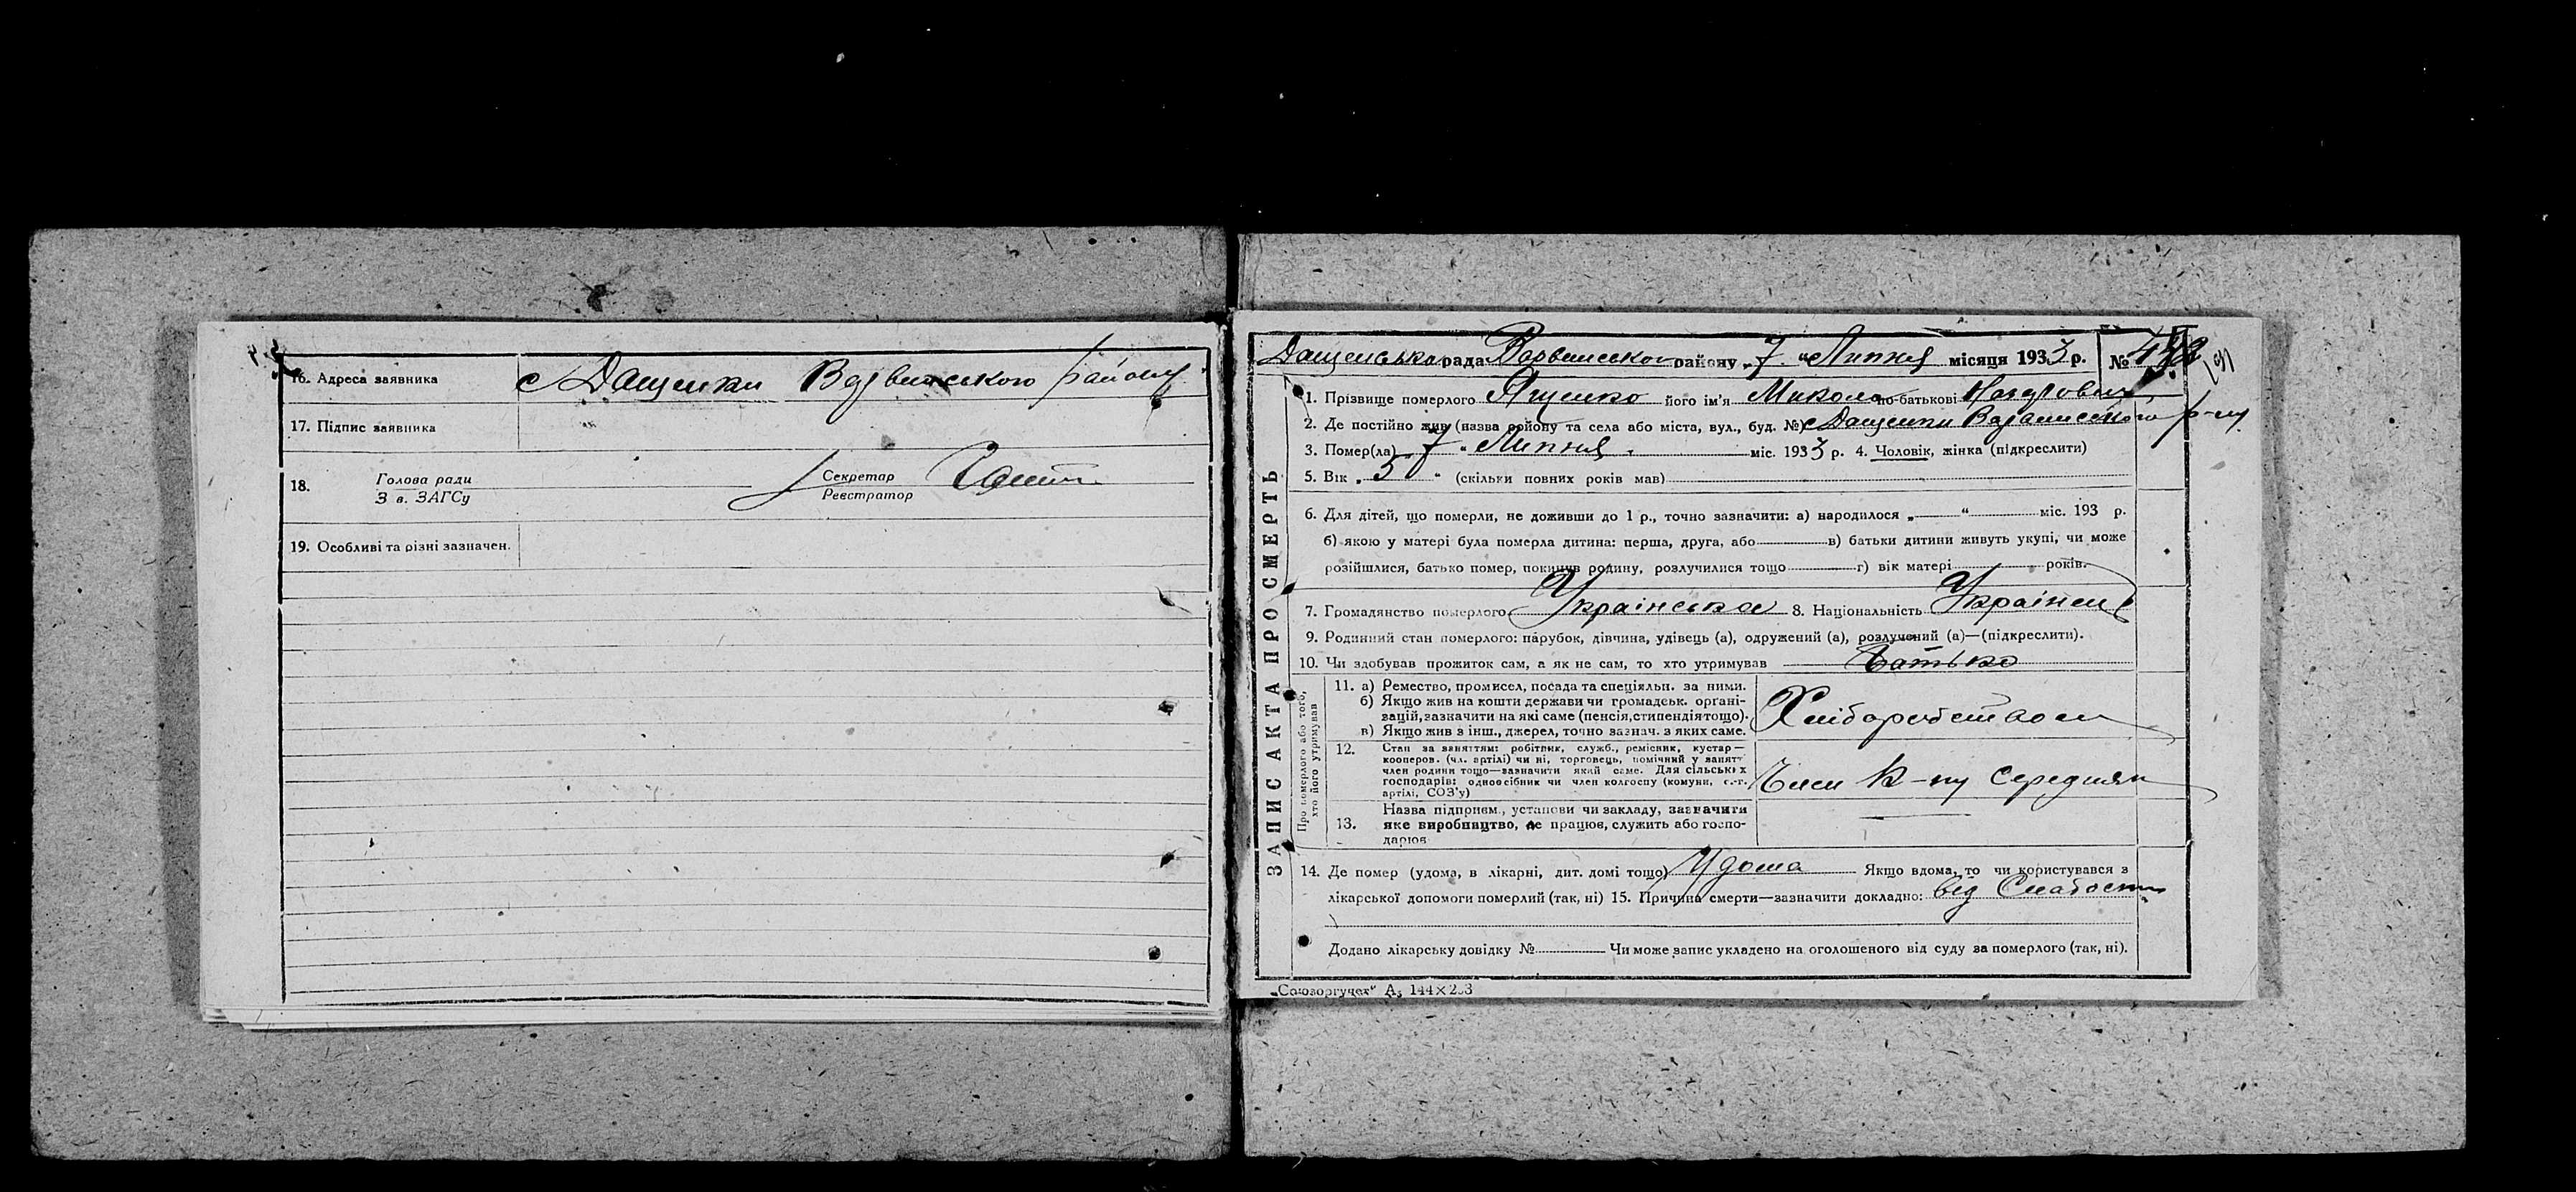 16. Адреса заявника с Дащенки Варвинського району
17. Підпис заявника
18. Голова ради Секретар
З в. ЗАГСу Реєстратор
19. Особливі та різні зазначен.
ЗАПИС АКТА ПРО СМЕРТЬ
Дащенська рада Варвинського району „7 “ Липня місяця 1933 р. №
1. Прізвище померлого Ященко його ім'я Микола по-батькові Назарович
2. Де постійно жив (назва району та села або міста, вул., буд. №) с Дащенки Варвинського р-ну
3. Помер(ла) 7 „ Липня міс. 1933 р. 4. Чоловік, жінка (підкреслити)
5. Вік „ 5 “ (скільки повних років мав)
6. Для дітей, що померли, не доживши до 1 р., точно зазначити: а) народилося „ “ міс. 193 р.
б) якою у матері була померла дитина: перша, друга, або в) батьки дитини живуть укупі, чи може
розійшлися, батько помер, покинув родину, розлучилися тощо г) вік матері років.
7. Громадянство померлого Українська 8. Національність Українець
9. Родинний стан померлого: парубок, дівчина, удівець (а), одружений (а), розлучений (а)—(підкреслити).
10. Чи здобував прожиток сам, а як не сам, то хто утримував Батько
Про померлого або того, хто його утримував
11. а) Ремество, промисел, посада та спеціяльн. за ними.
б) Якщо жив на кошти держави чи громадськ. органі-
зацій, зазначити на які саме (пенсія, стипендія тощо).
в) Якщо жив з інш., джерел, точно зазнач. з яких саме.
Хліборобством
12. Стан за заняттям: робітник, служб., ремісник, кустар—
кооперов. (чл. артілі) чи ні, торговець, помічний у занятт
член родини тощо—зазначити який саме. Для сільськ х
господарів: одноосібник чи член колгоспу (комуни, с.-г.
артілі, СОЗ'у)
Член к-пу Середняк
13. Назва підприєм., установи чи закладу, зазначити
яке виробництво, де працюв, служить або госпо-
дарюв
14. Де помер (удома, в лікарні, дит. домі тощо) Удома Якщо вдома, то чи користувався з
лікарської допомоги померлий (так, ні) 15. Причина смерти—зазначити докладно: від Слабости
Додано лікарську довідку № Чи може запис укладено на оголошеного від суду за померлого (так, ні).
„Союзоргучет“ А5 144×203